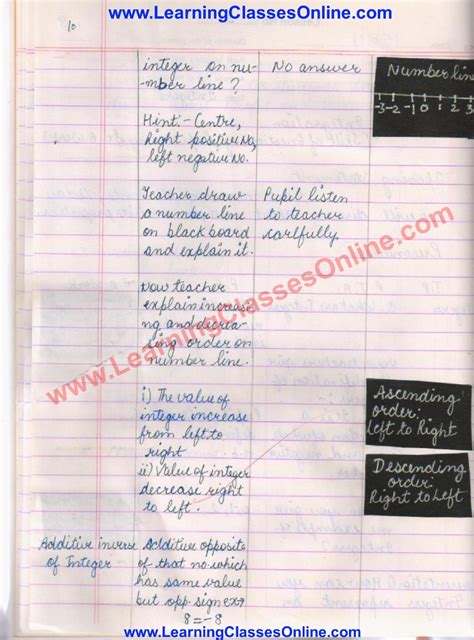 www.LearningClassesOnline.com
10
integer on nu-
-mber line?
Hint:- Centre,
Right positive No,
left negative No.
No answer
Number line
-3 -2 -1 0 1 2 3
Teacher draw
a number line
on black board
and explain it.
Pupil listen
to teacher
carlfully.
Now teacher
explain increasi
ng and decrea-
sing order on
number line.
www.LearningClassesOnline.com
i) The value of
integer increase
from left to
right
ii) Value of integer
decrease right
to left.
Ascending
order:
Left to Right
Descending
order:
Right to Left
Additive inverse
of Integer
Additive opposite
of that no. which
has same value
but opp sign ex→
8 = -8
www.LearningClassesOnline.com